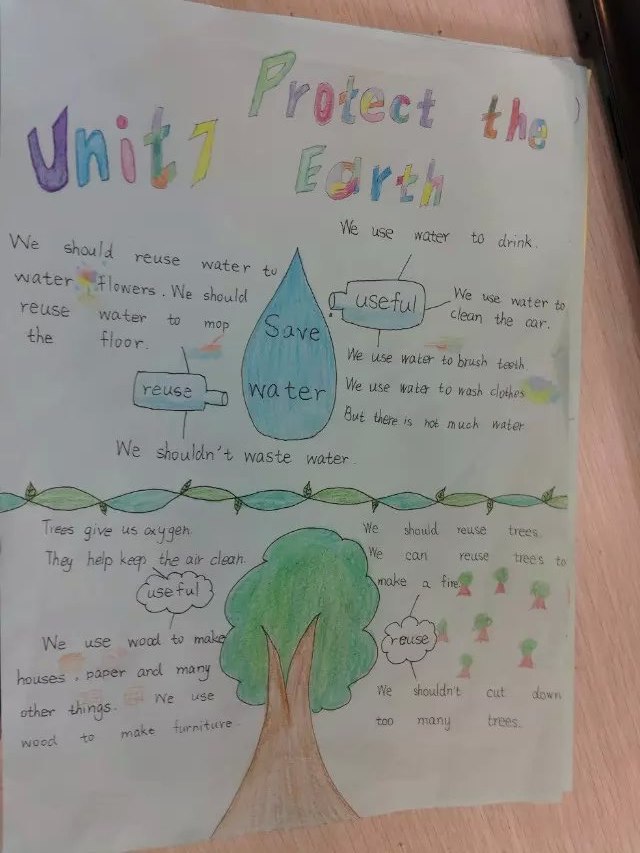 Unit 7
Protect the
Earth
We should reuse water to
water flowers. We should
reuse water to mop
the floor.
reuse
We shouldn't waste water.
Save
water
We use water to drink.
useful
We use water to
clean the car.
We use water to brush teeth
We use water to wash clothes
But there is not much water
Trees give us oxygen.
They help keep the air clean.
useful
We use wood to make
houses, paper and many
other things. We use
wood to make furniture.
We should reuse trees.
We can reuse trees to
make a fire.
reuse
We shouldn't cut down
too many trees.